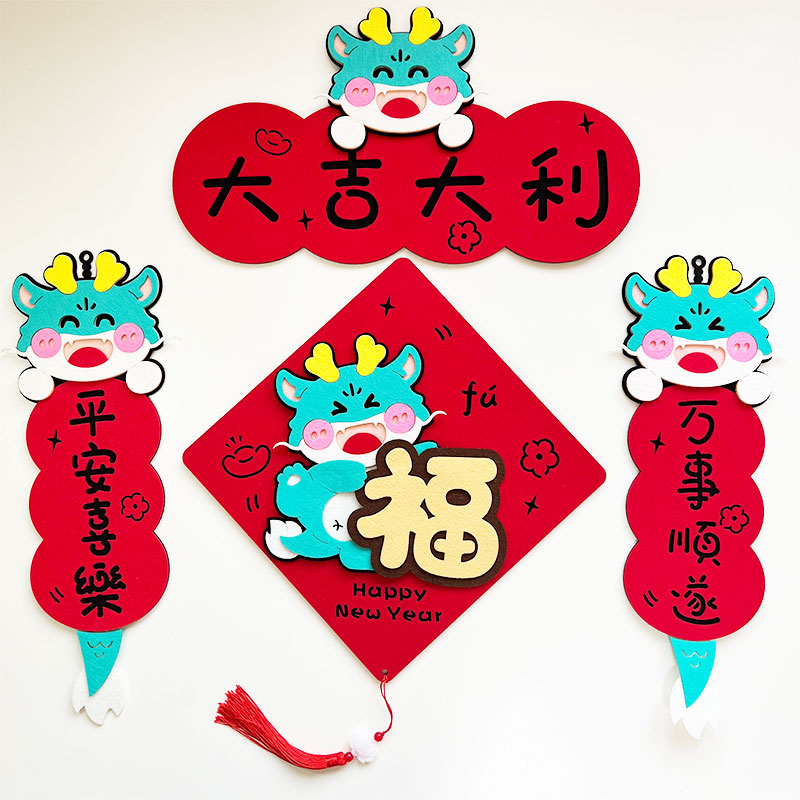 大吉大利
平安喜樂
fú
福
Happy
New Year
万事順遂